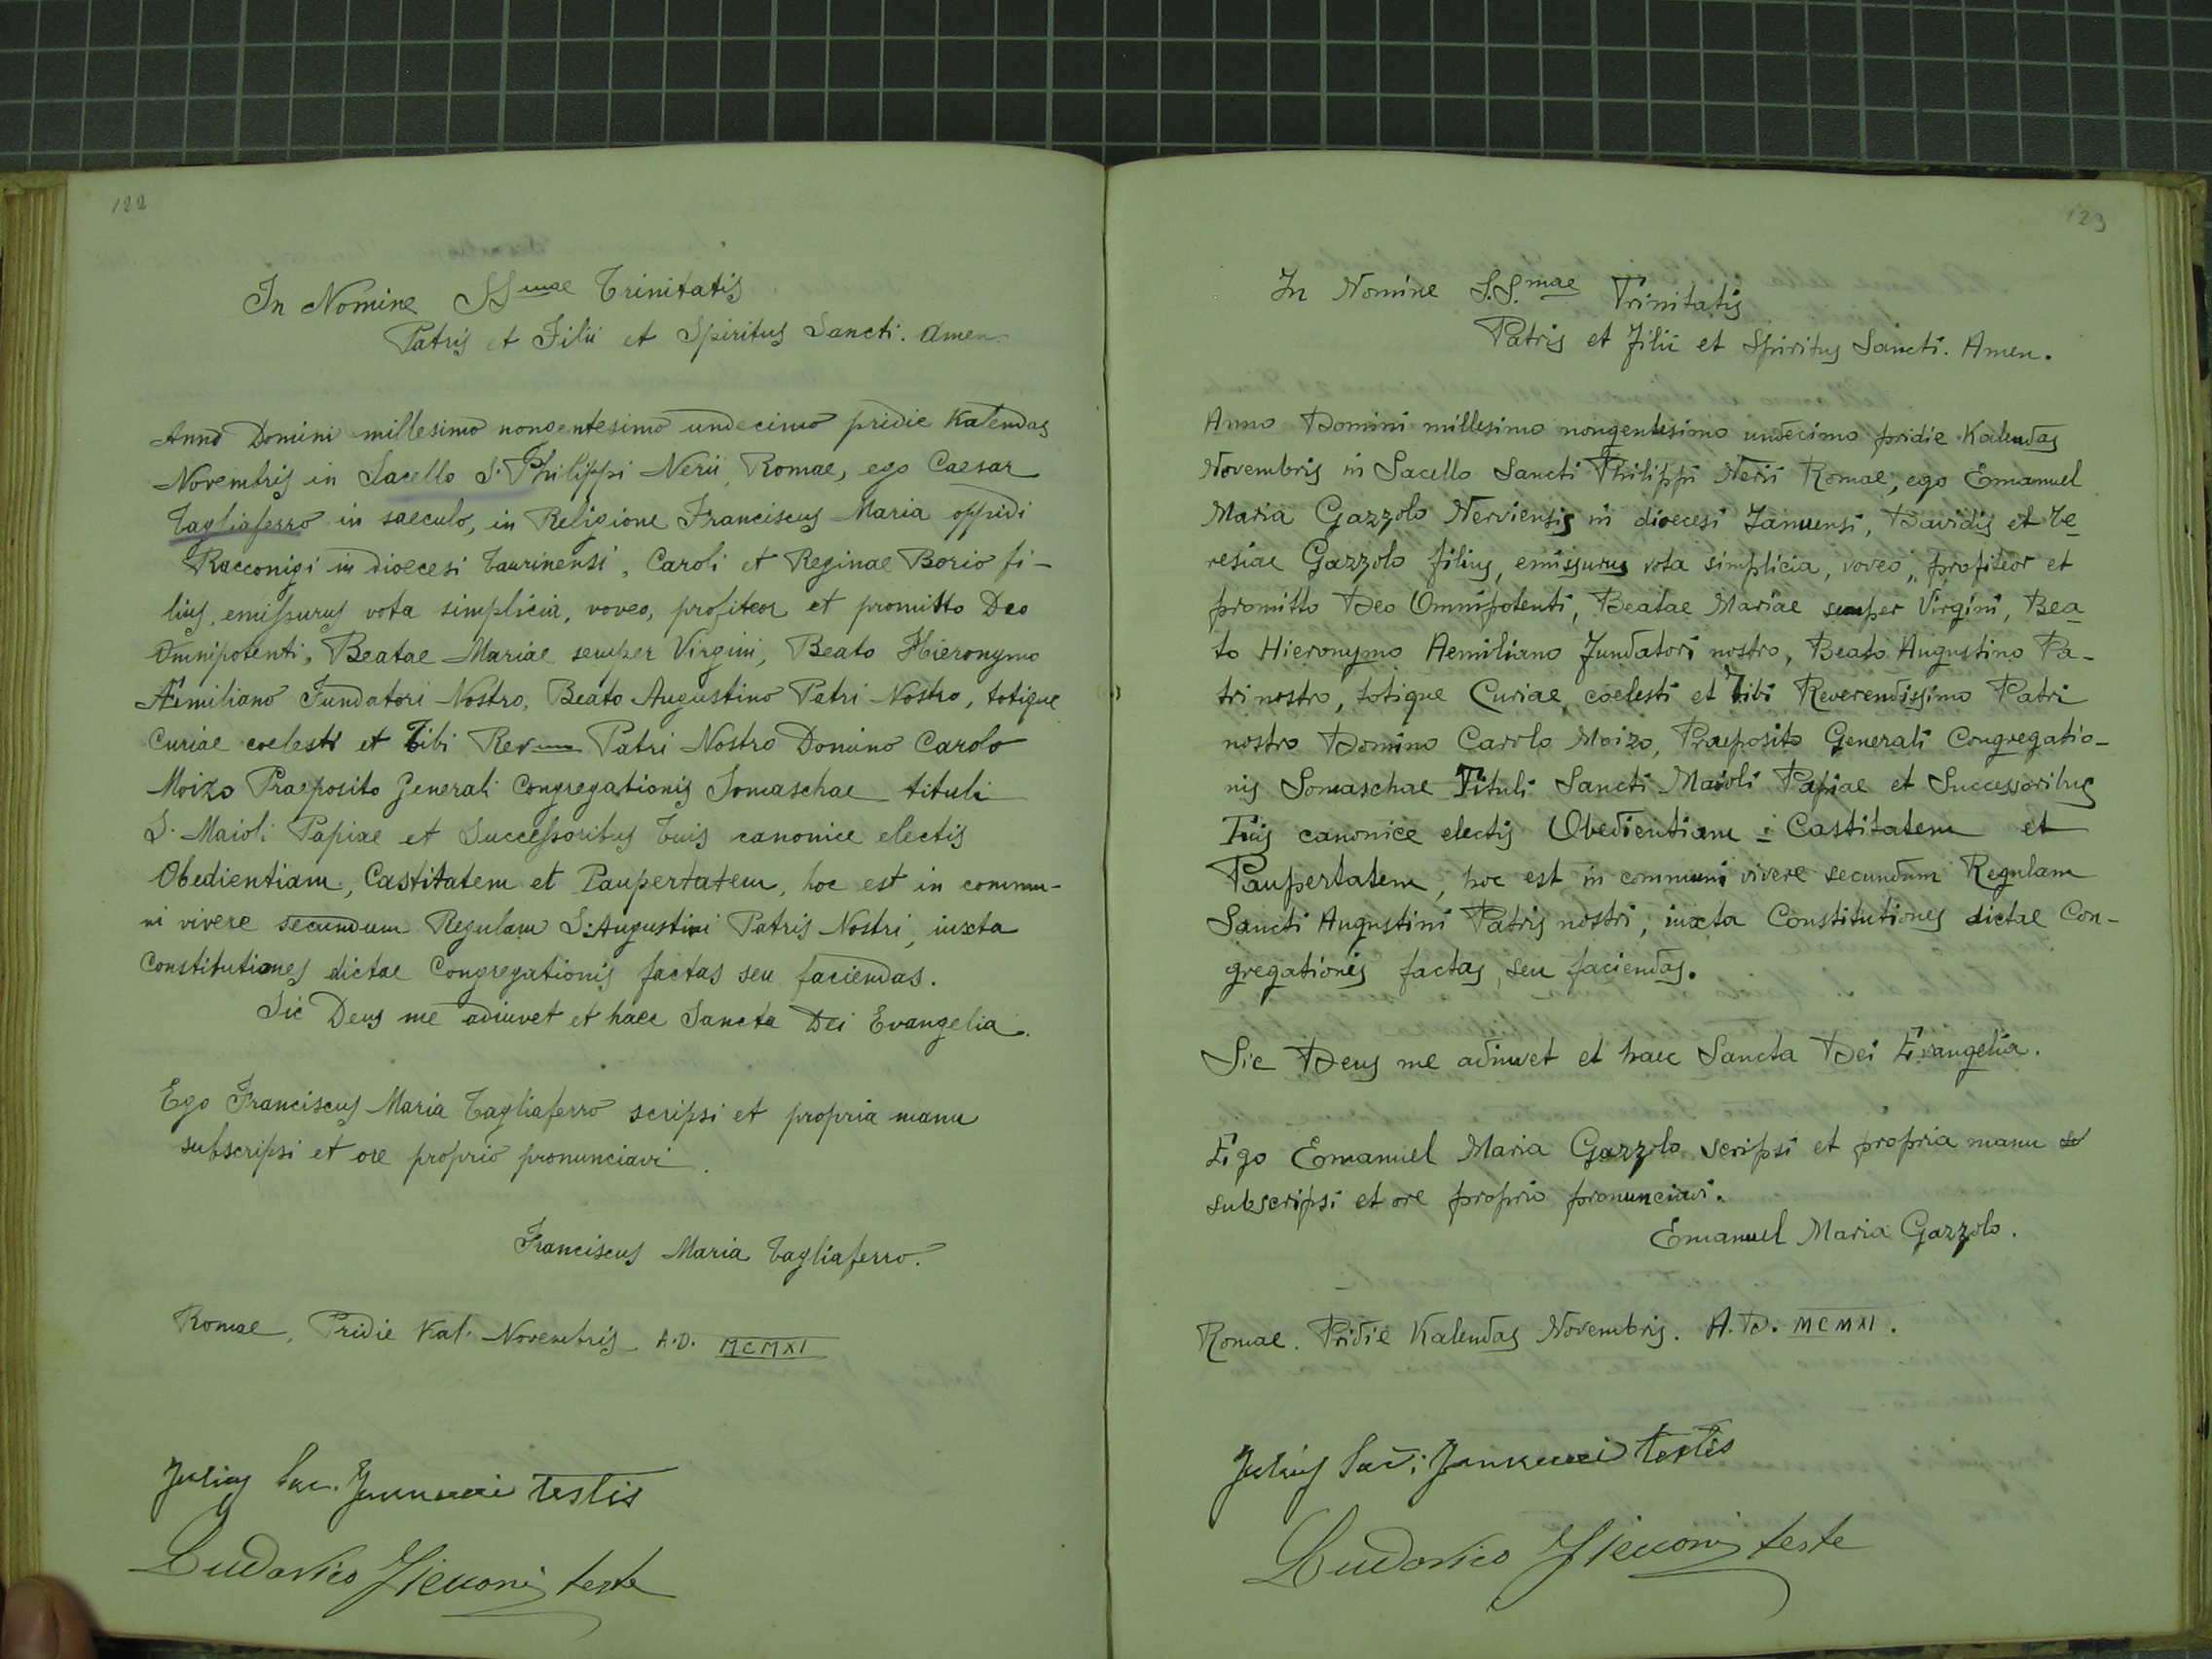 122
In Nomine SSmae Trinitatis
Patris et Filii et Spiritus Sancti. Amen.
Anno Domini millesimo nongentesimo undecimo pridie Kalendas
Novembris in Sacello S. Philippi Nerii Romae, ego Caesar
Tagliaferro in saeculo, in Religione Franciscus Maria oppidi
Racconigi in dioecesi Taurinensi, Caroli et Reginae Borio fi-
lius, emissurus vota simplicia, voveo, profiteor et promitto Deo
Omnipotenti, Beatae Mariae semper Virgini, Beato Hieronymo
Aemiliano Fundatori Nostro, Beato Augustino Patri Nostro, totique
Curiae coelesti et Tibi Rev Patri Nostro Domino Carolo
Moizo Praeposito Generali Congregationis Somaschae tituli
S. Maioli Papiae et Successoribus Tuis canonice electis
Obedientiam, Castitatem et Paupertatem, hoc est in commu-
ni vivere secundum Regulam S. Augustini Patris Nostri, iuxta
Constitutiones dictae Congregationis factas seu faciendas.
Sic Deus me adiuvet et haec Sancta Dei Evangelia.
Ego Franciscus Maria Tagliaferro scripsi et propria manu
subscripsi et ore proprio pronunciavi.
Franciscus Maria Tagliaferro.
Romae, Pridie Kal. Novembris A.D. MCMXI
Julius Sac. testis
Ludovico teste
123
In Nomine S.S.mae Trinitatis
Patris et Filii et Spiritus Sancti. Amen.
Anno Domini millesimo nongentesimo undecimo pridie Kalendas
Novembris in Sacello Sancti Philippi Nerii Romae, ego Emanuel
Maria Gazzolo Nerviensis in dioecesi Januensi, Davidis et Te-
resiae Gazzolo filius, emissurus vota simplicia, voveo, profiteor et
promitto Deo Omnipotenti, Beatae Mariae semper Virgini, Bea-
to Hieronymo Aemiliano Fundatori nostro, Beato Augustino Pa-
tri nostro, totique Curiae coelesti et Tibi Reverendissimo Patri
nostro Domino Carolo Moizo, Praeposito Generali Congregatio-
nis Somaschae Tituli Sancti Maioli Papiae et Successoribus
Tuis canonice electis Obedientiam : Castitatem et
Paupertatem, hoc est in communi vivere secundum Regulam
Sancti Augustini Patris nostri, iuxta Constitutiones dictae Con-
gregationis factas, seu faciendas.
Sic Deus me adiuvet et haec Sancta Dei Evangelia.
Ego Emanuel Maria Gazzolo scripsi et propria manu
subscripsi et ore proprio pronunciavi.
Emanuel Maria Gazzolo.
Romae. Pridie Kalendas Novembris. A.D. MCMXI.
Julius Sac. testis
Ludovico teste